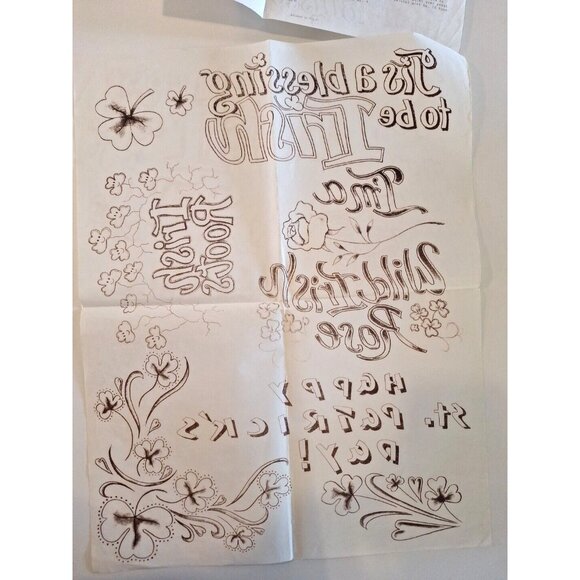 'Tis a blessing
to be Irish
Irish
Roots
I'm a
Wild Irish
Rose
HAPPY
St. PATRICK'S
DAY!